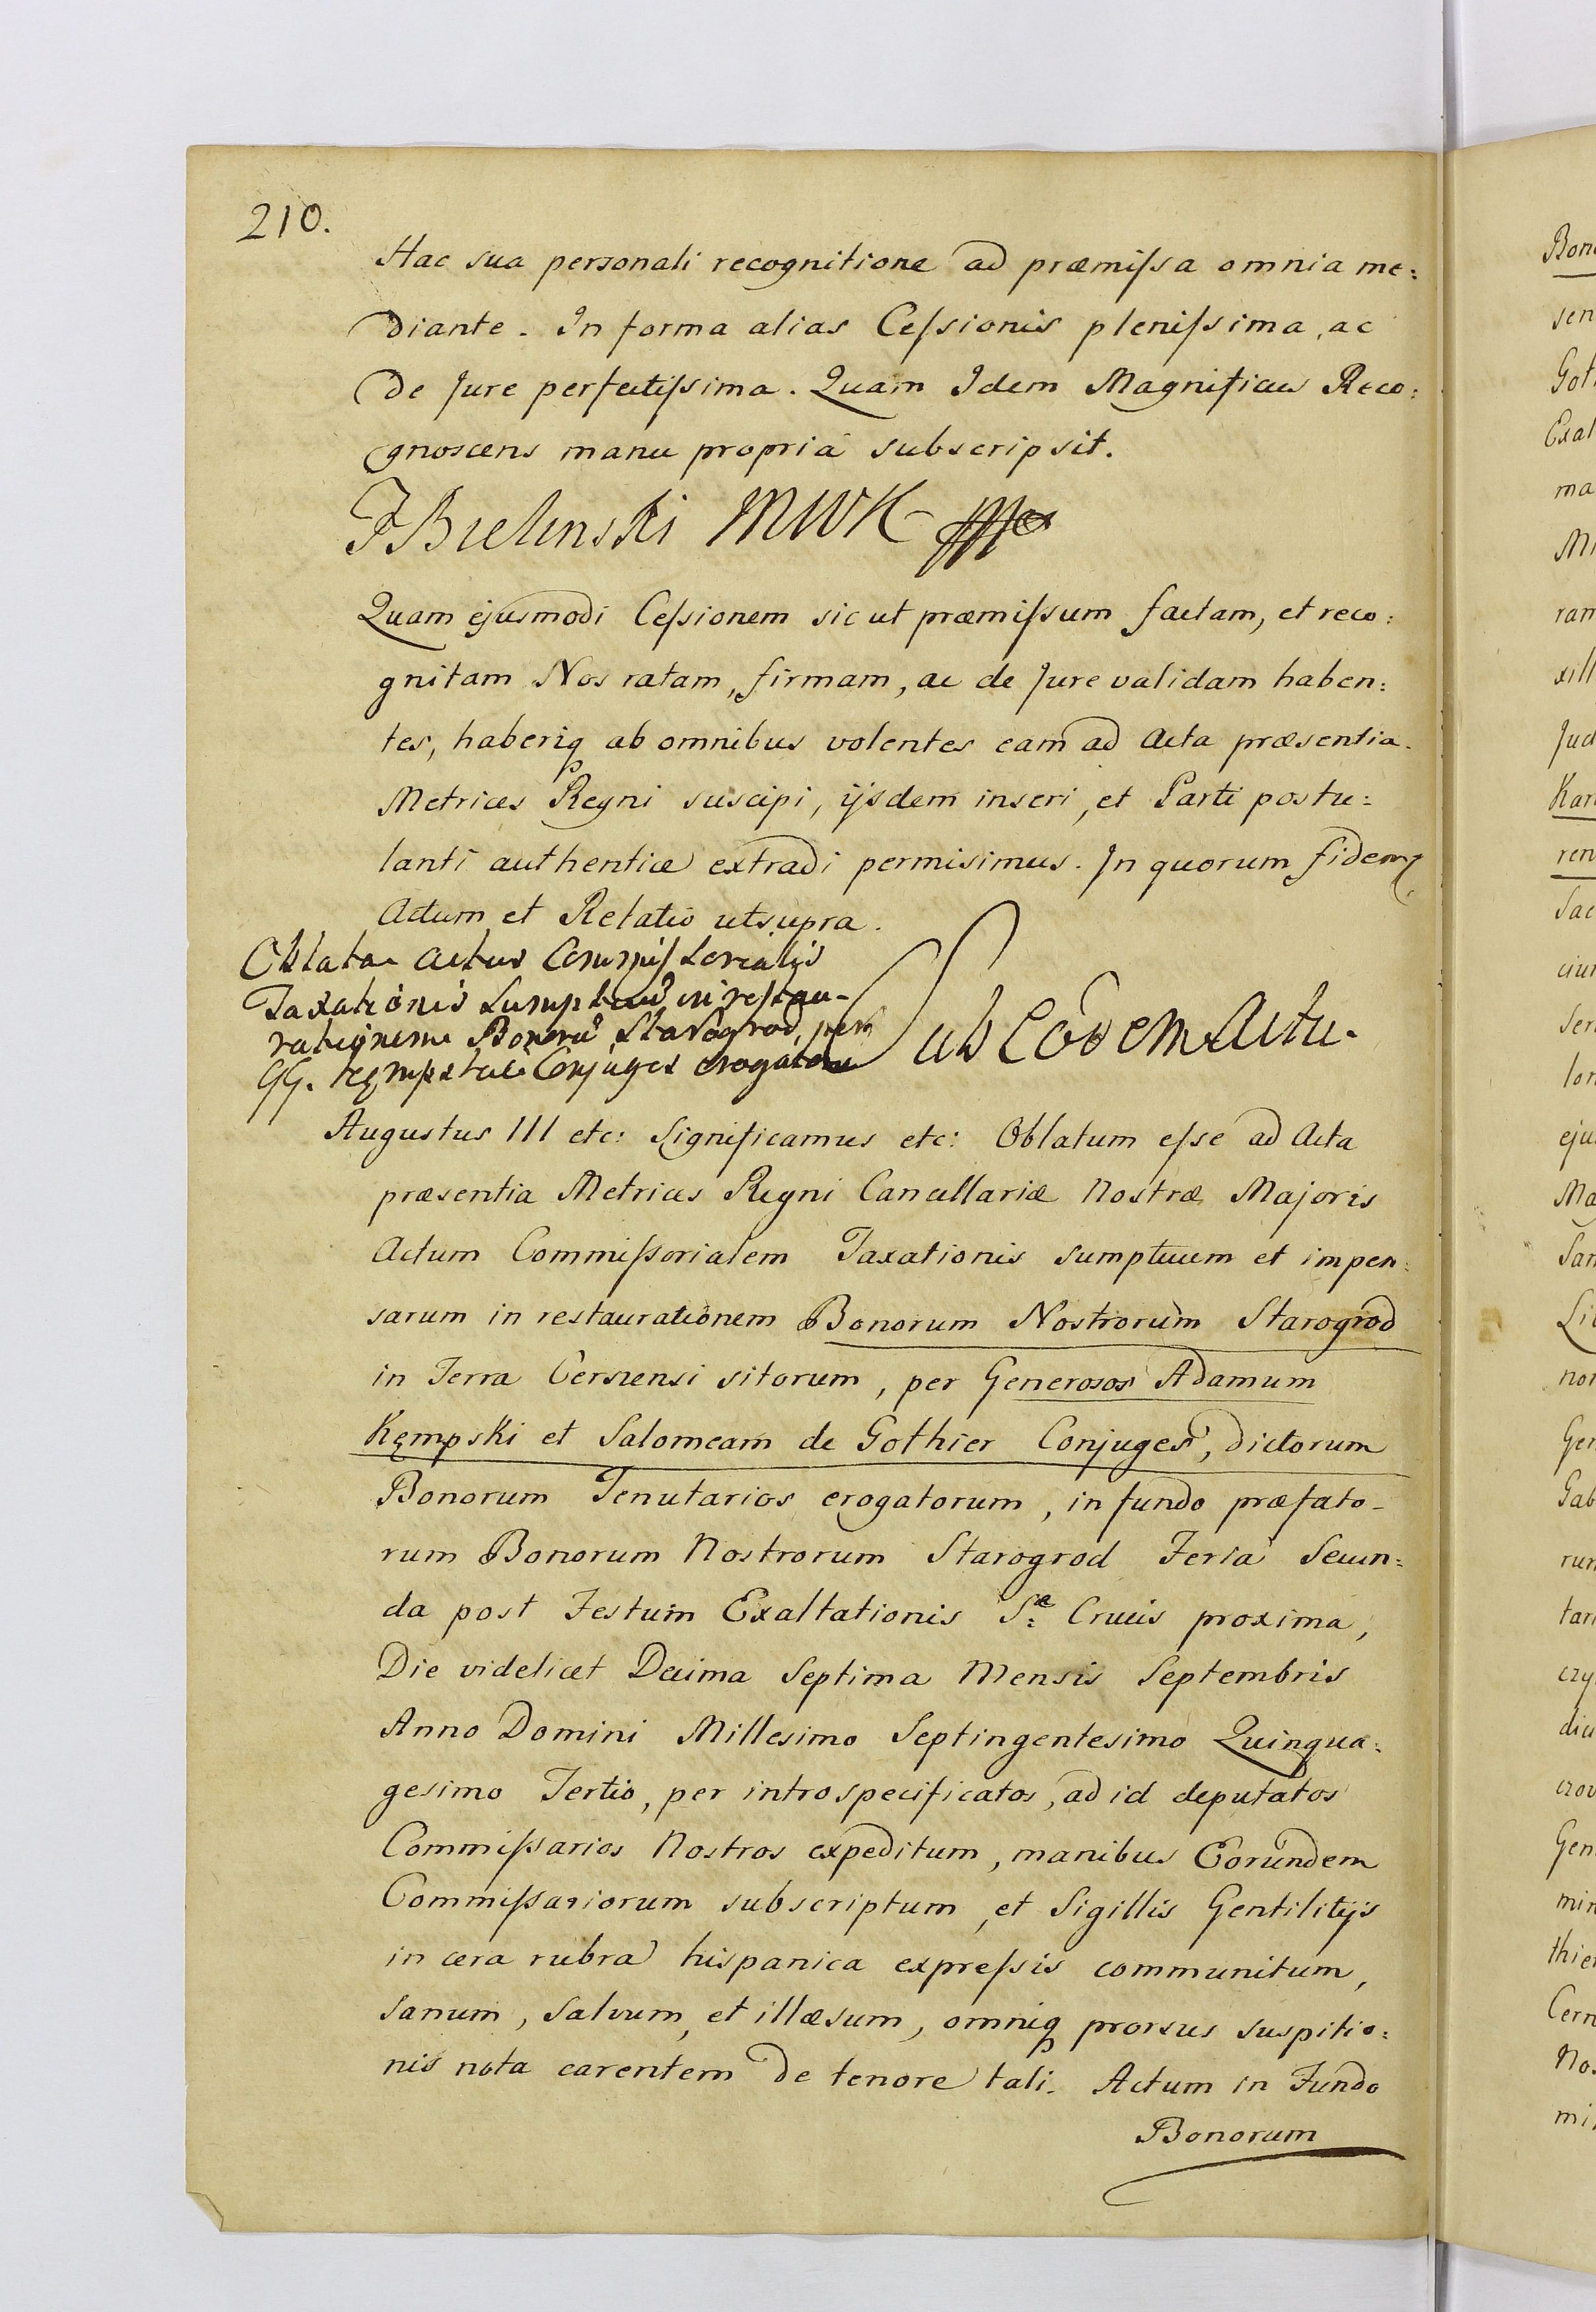 210.
Hac sua personali recognitione ad præmiſsa omnia me:
diante. In forma alias Ceſsionis pleniſsima, ac
de Jure perfectiſsima. Quam Idem Magnificus Reco:
gnoscens manu propria subscripsit.
FBielinski MWK mp
Quam ejusmodi Ceſsionem sic ut præmiſsum factam, et reco:
gnitam Nos ratam, firmam, ac de Jure validam haben:
tes, haberiq ab omnibus volentes eam ad Acta præsentia
Metrices Regni suscipi, ijsdem inseri, et Parti postu:
lanti authentice extradi permisimus. In quorum fidem
Actum et Relatio utsupra.
Oblata Actus Commiſsorialis
Taxationis Sumptuũ in restau-
rationem Bonorũ Starogrod, per
GG. Kępskie Conjuges erogatorũ
Sub Eodem Actu.
Augustus III etc: Significamus etc: Oblatum eſse ad Acta
præsentia Metrices Regni Cancellariæ Nostræ Majoris
Actum Commiſsorialem Taxationis sumptuum et impen:
sarum in restaurationem Bonorum Nostrorum Starogrod
in Terra Cersnensi sitorum, per Generosos Adamum
Kęmpski et Salomeam de Gothier Conjuges, dictorum
Bonorum Tenutarios erogatorum, in fundo præfato-
rum Bonorum Nostrorum Starogrod Feria Secun:
da post Festum Exaltationis S:æ Crucis proxima,
Die videlicet Decima Septima Mensis Septembris
Anno Domini Millesimo Septingentesimo Quinqua:
gesimo Tertio, per introspecificatos, ad id deputatos
Commiſsarios Nostros expeditum, manibus Eorundem
Commiſsariorum subscriptum, et Sigillis Gentilitijs
in cera rubra hispanica expreſsis communitum,
sanum, salvum, et illæsum, omniq prorsus suspitio:
nis nota carentem de tenore tali. Actum in Fundo
Bonorum